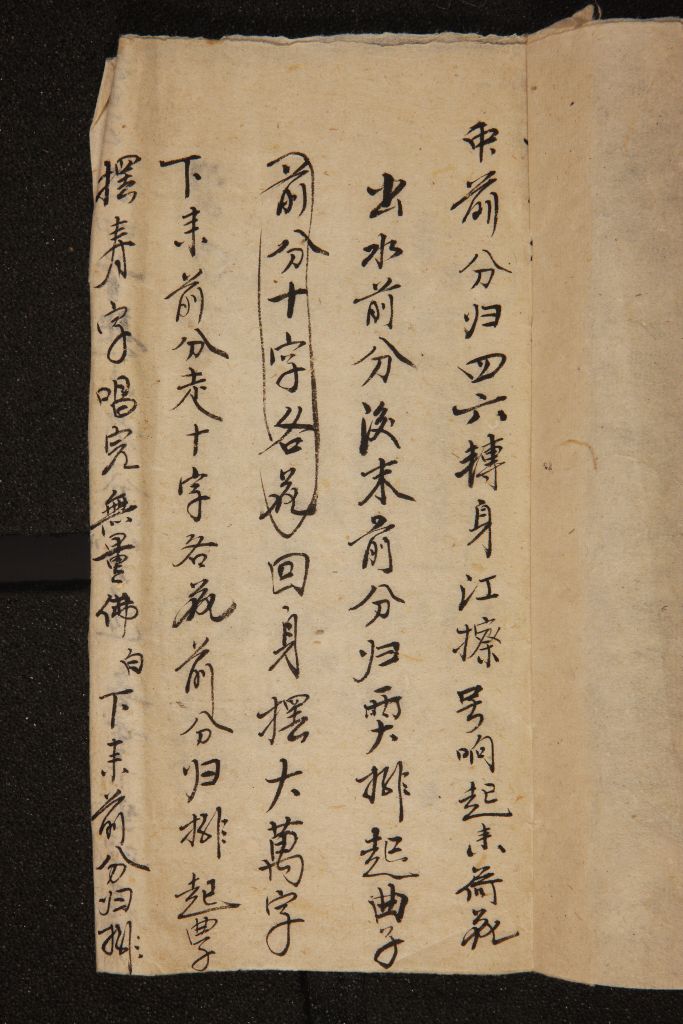 巾前分归四六轉身江擦号响起来荷花
出水前分後末前分归要排起曲子
前分十字各花回身摆大萬字
下来前分走十字各花前分归排起曲子
摆青字唱完無量佛白下来前分归排